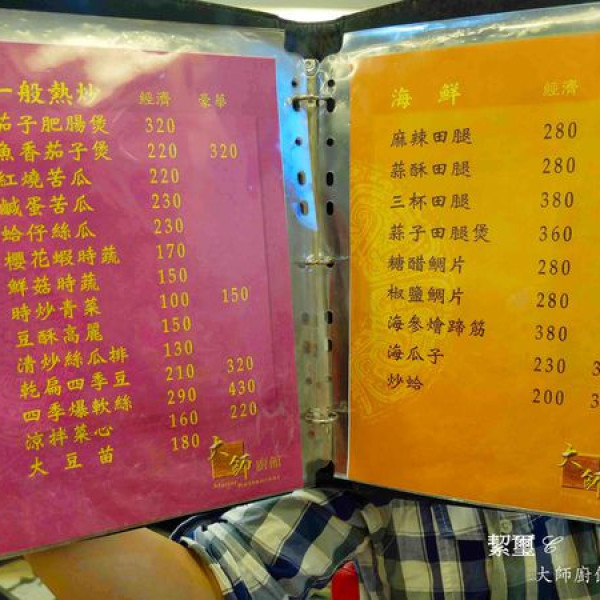 一般熱炒 經濟 豪華
茄子肥腸煲 320
魚香茄子煲 220 320
紅燒苦瓜 220
鹹蛋苦瓜 230
蛤仔絲瓜 230
櫻花蝦時蔬 170
鮮菇時蔬 150
時炒青菜 100 150
豆酥高麗 150
清炒絲瓜排 130
乾扁四季豆 210 320
四季爆軟絲 290 430
涼拌菜心 160 220
大豆苗 180
大師廚館
海鮮 經濟
麻辣田腿 280
蒜酥田腿 280
三杯田腿 380
蒜子田腿煲 360
糖醋鯛片 280
椒鹽鯛片 280
海參燴蹄筋 380
海瓜子 230 3
炒蛤 200 3
大師
絜璽
大師廚